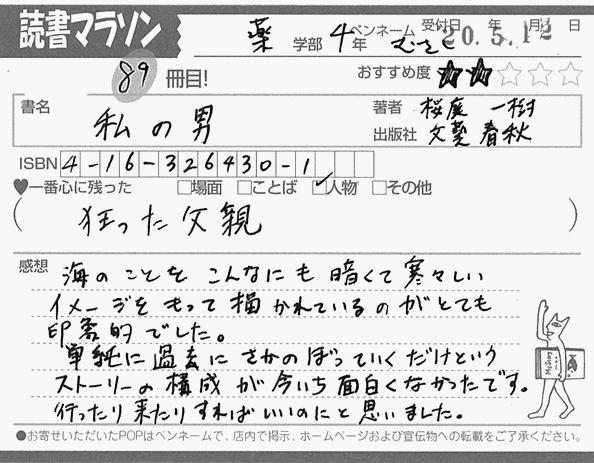 読書マラソン
薬 学部 4年 ペンネーム むさし 受付日 年 月 日
20.5.12
89 冊目!
おすすめ度 ★★☆☆☆
書名 私の男
著者 桜庭 一樹
出版社 文藝春秋
ISBN 4-16-326430-1
♥一番心に残った □場面 □ことば ☑人物 □その他
(狂った父親)
感想 海のことを こんなにも 暗くて 寒々しい
イメージを もって 描かれているのがとても
印象的でした。
単純に過去に さかのぼっていくだけという
ストーリーの構成が今いち面白くなかったです。
行ったり来たりすればいいのにと思いました。
●お寄せいただいたPOPはペンネームで、店内で掲示、ホームページおよび宣伝物への転載をご了承ください。